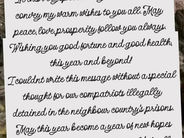 convey my warm wishes to you all. May
peace, love, prosperity follow you always.
Wishing you good fortune and good health,
this year and beyond!
I couldnt write this message without a special
thought for our compatriots illegally
detained in the neighbour country's prisons.
May this year become a year of new hopes